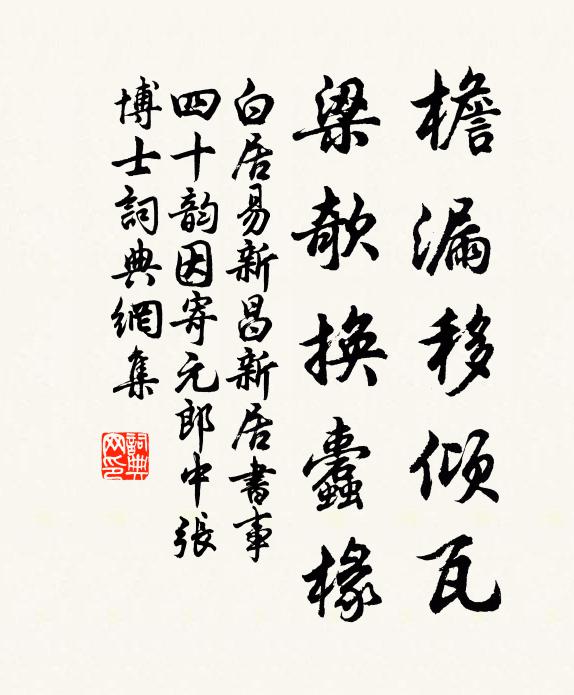 檐漏移倾瓦
梁欹换蠹椽
白居易新昌新居書事
四十韵因寄元郎中張
博士詞典網集
詞典
网印